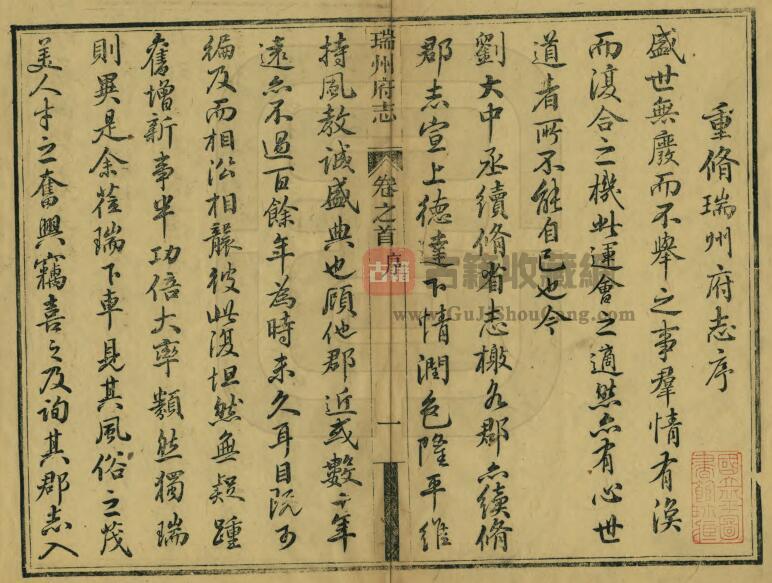 重脩瑞州府志序
盛世無廢而不舉之事羣情有渙
而復合之機此運會之適然亦有心世
道者所不能自已也今
劉大中丞續脩省志檄各郡亦續脩
郡志宣上德達下情潤色隆平維
瑞州府志 卷之首 序 一
持風教誠盛典也顧他郡近或數十年
遠亦不過百餘年為時未久耳目既可
徧及而相沿相襲彼此復坦然無疑踵
舊增新事半功倍大率類然獨瑞
則異是余蒞瑞下車見其風俗之茂
美人才之奮興竊喜之及詢其郡志入
古籍
古籍收藏網
www.GuJiShouCang.com